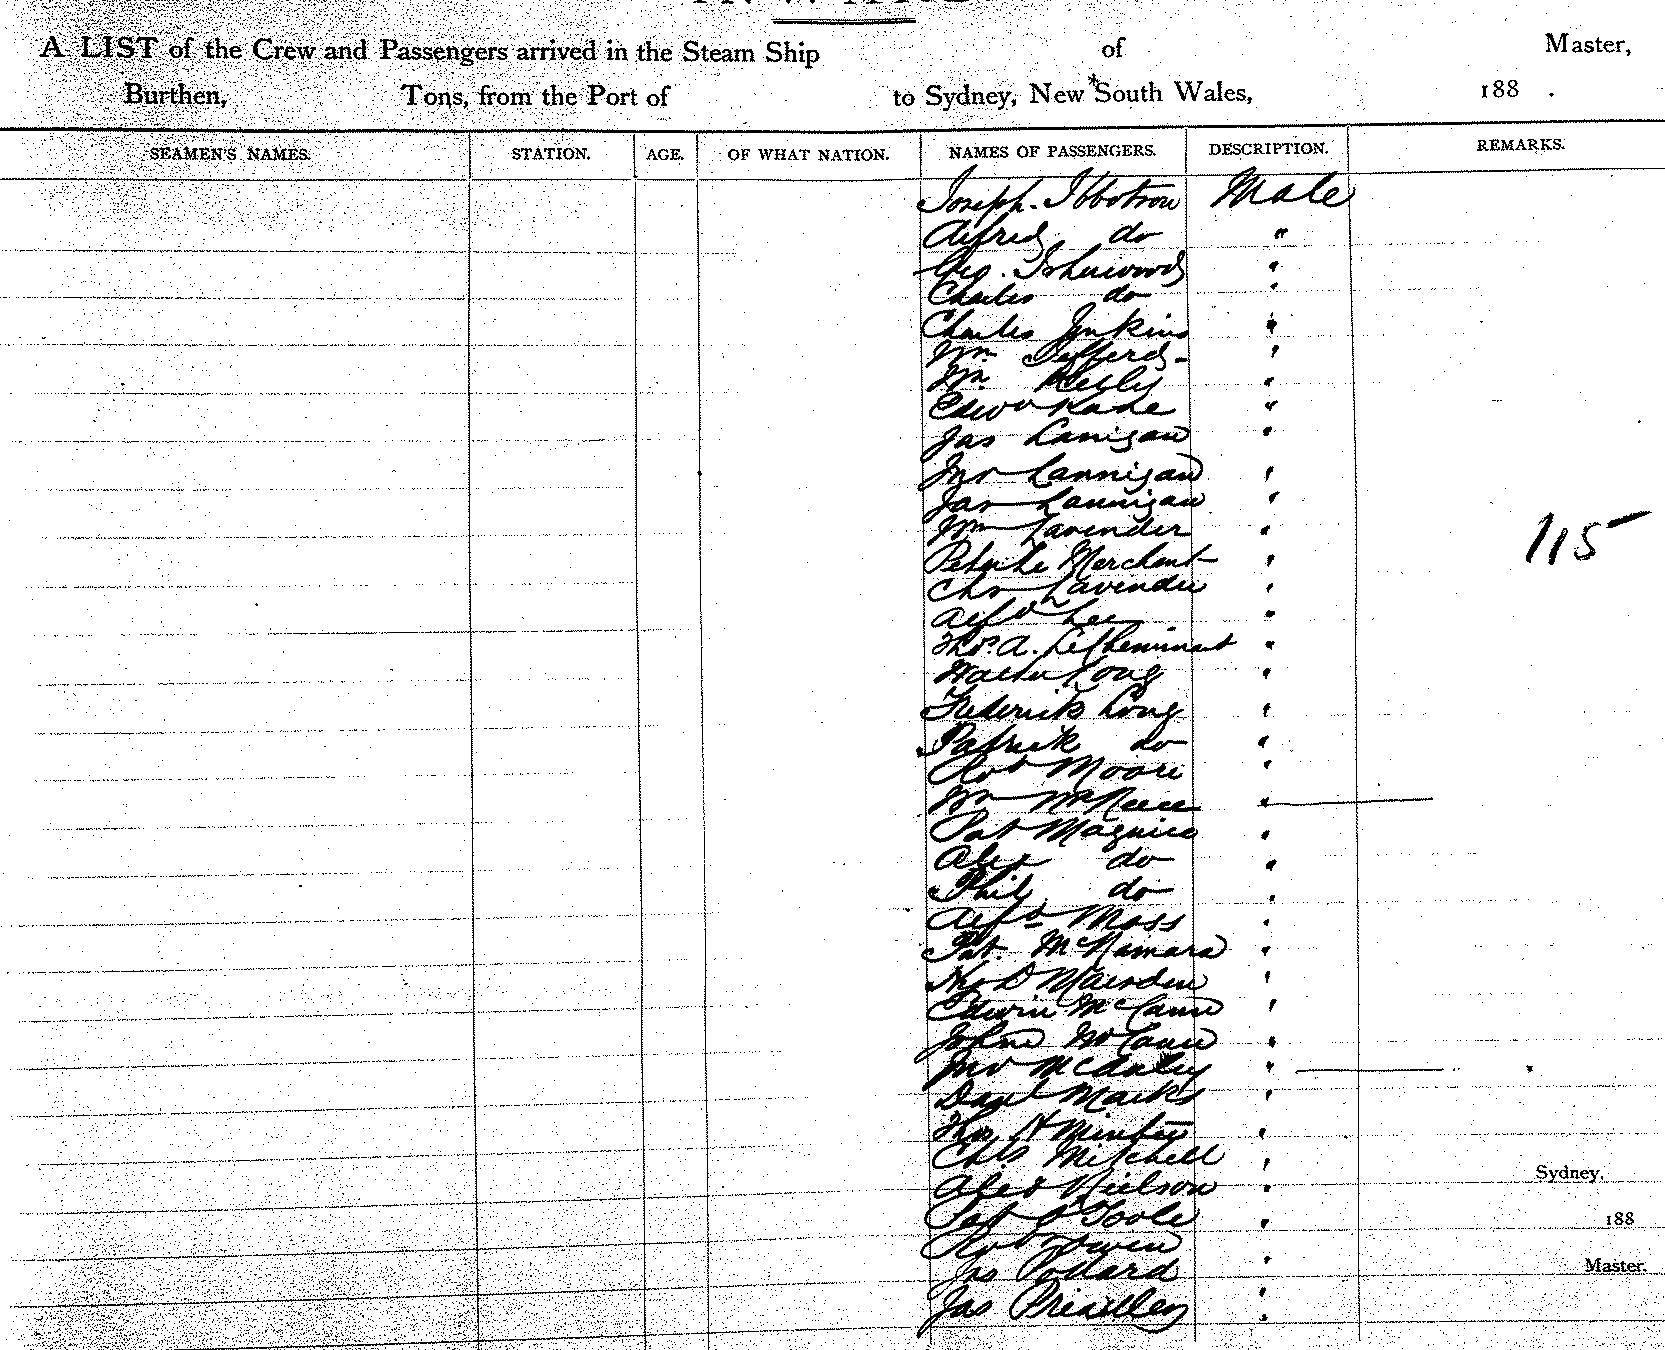 A LIST of the Crew and Passengers arrived in the Steam Ship of Master,
Burthen, Tons, from the Port of to Sydney, New South Wales, 188 .
SEAMEN'S NAMES. STATION. AGE. OF WHAT NATION. NAMES OF PASSENGERS. DESCRIPTION. REMARKS.
Joseph Ibbotson Male
Alfred do "
Geo. Isherwood "
Charles do "
Charles Jenkins "
Wm "
Wm Kelly "
Edwd Kane "
Jas Lanigan "
Jno Lannigan "
Jas Lannigan "
Wm Lavender "
115
Merchant "
Chs Lavender "
Alfd Lee "
Thos. A. "
Walter Long "
Frederick Long "
Patrick do "
Robt Moore "
Wm "
Pat Maguire "
Alex do "
Phil do "
Alfd Moss "
Pat. McNamara "
Thos D "
Edwin McCann "
John McCann "
Jno McAuley "
Danl Marks "
Thos H "
Chls Mitchell "
Alex Neilson "
Sydney,
Pat O'Toole "
188
Robt Owen
Jas Pollard "
Master.
Jas "